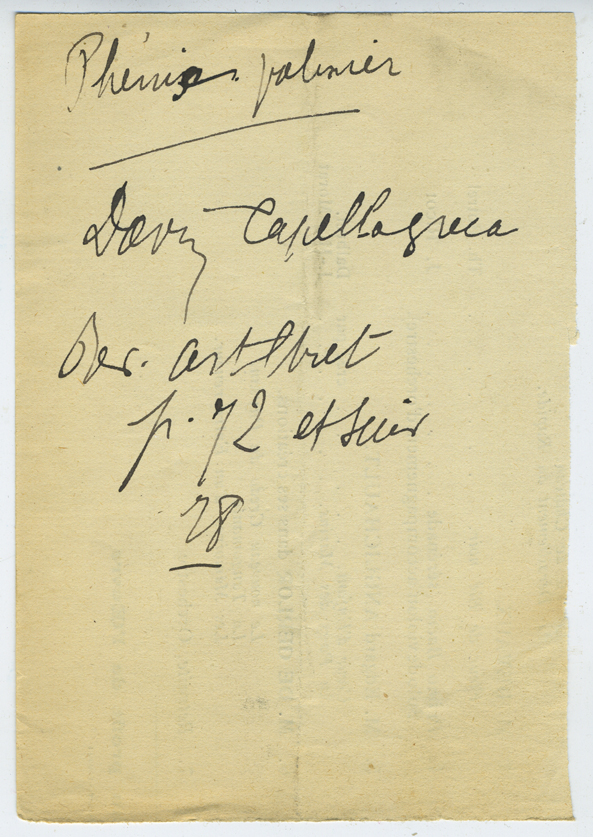 Phénix. palmier
Capella greca
Rev. art Chret
p. 72 et suiv
28